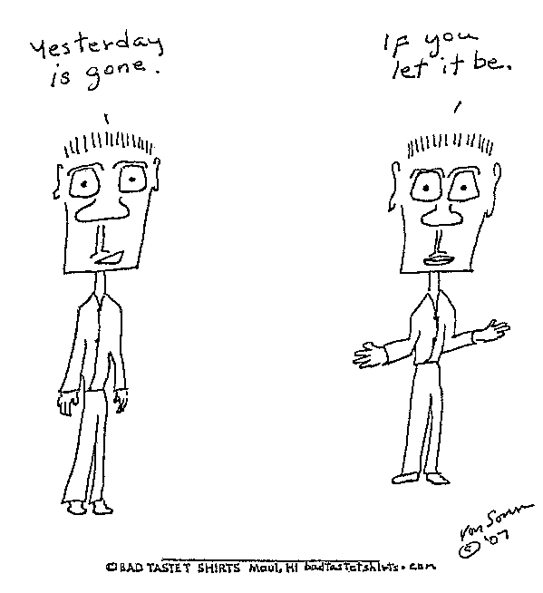 Yesterday
is gone.
If you
let it be.
von Sonn
© '07
© BAD TASTET SHIRTS Maui, HI badtastetshirts.com